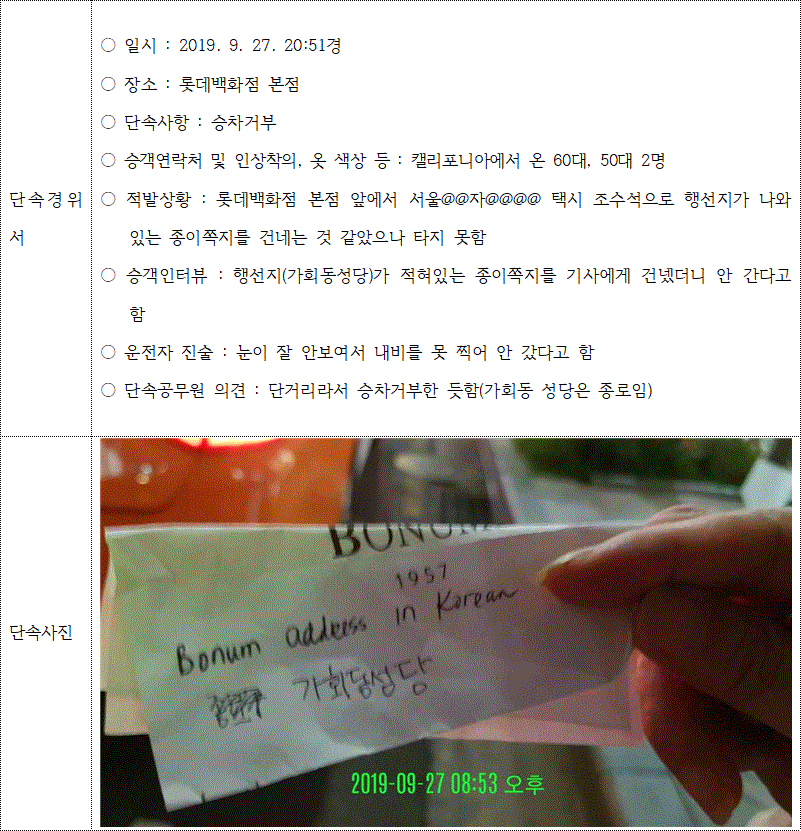 ○ 일시 : 2019. 9. 27. 20:51경
○ 장소 : 롯데백화점 본점
○ 단속사항 : 승차거부
○ 승객연락처 및 인상착의, 옷 색상 등 : 캘리포니아에서 온 60대, 50대 2명
단속경위
서
○ 적발상황 : 롯데백화점 본점 앞에서 서울@@자@@@@ 택시 조수석으로 행선지가 나와
있는 종이쪽지를 건네는 것 같았으나 타지 못함
○ 승객인터뷰 : 행선지(가회동성당)가 적혀있는 종이쪽지를 기사에게 건넸더니 안 간다고
함
○ 운전자 진술 : 눈이 잘 안보여서 내비를 못 찍어 안 갔다고 함
○ 단속공무원 의견 : 단거리라서 승차거부한 듯함(가회동 성당은 종로임)
단속사진
BONUM
1957
Bonum address in Korean
가회동성당
2019-09-27 08:53 오후